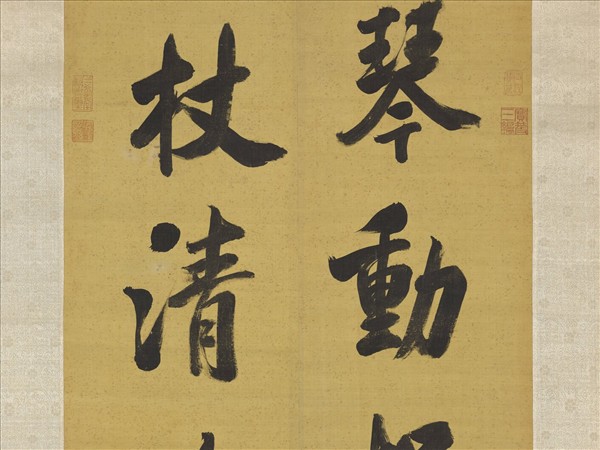 琴動
杖清